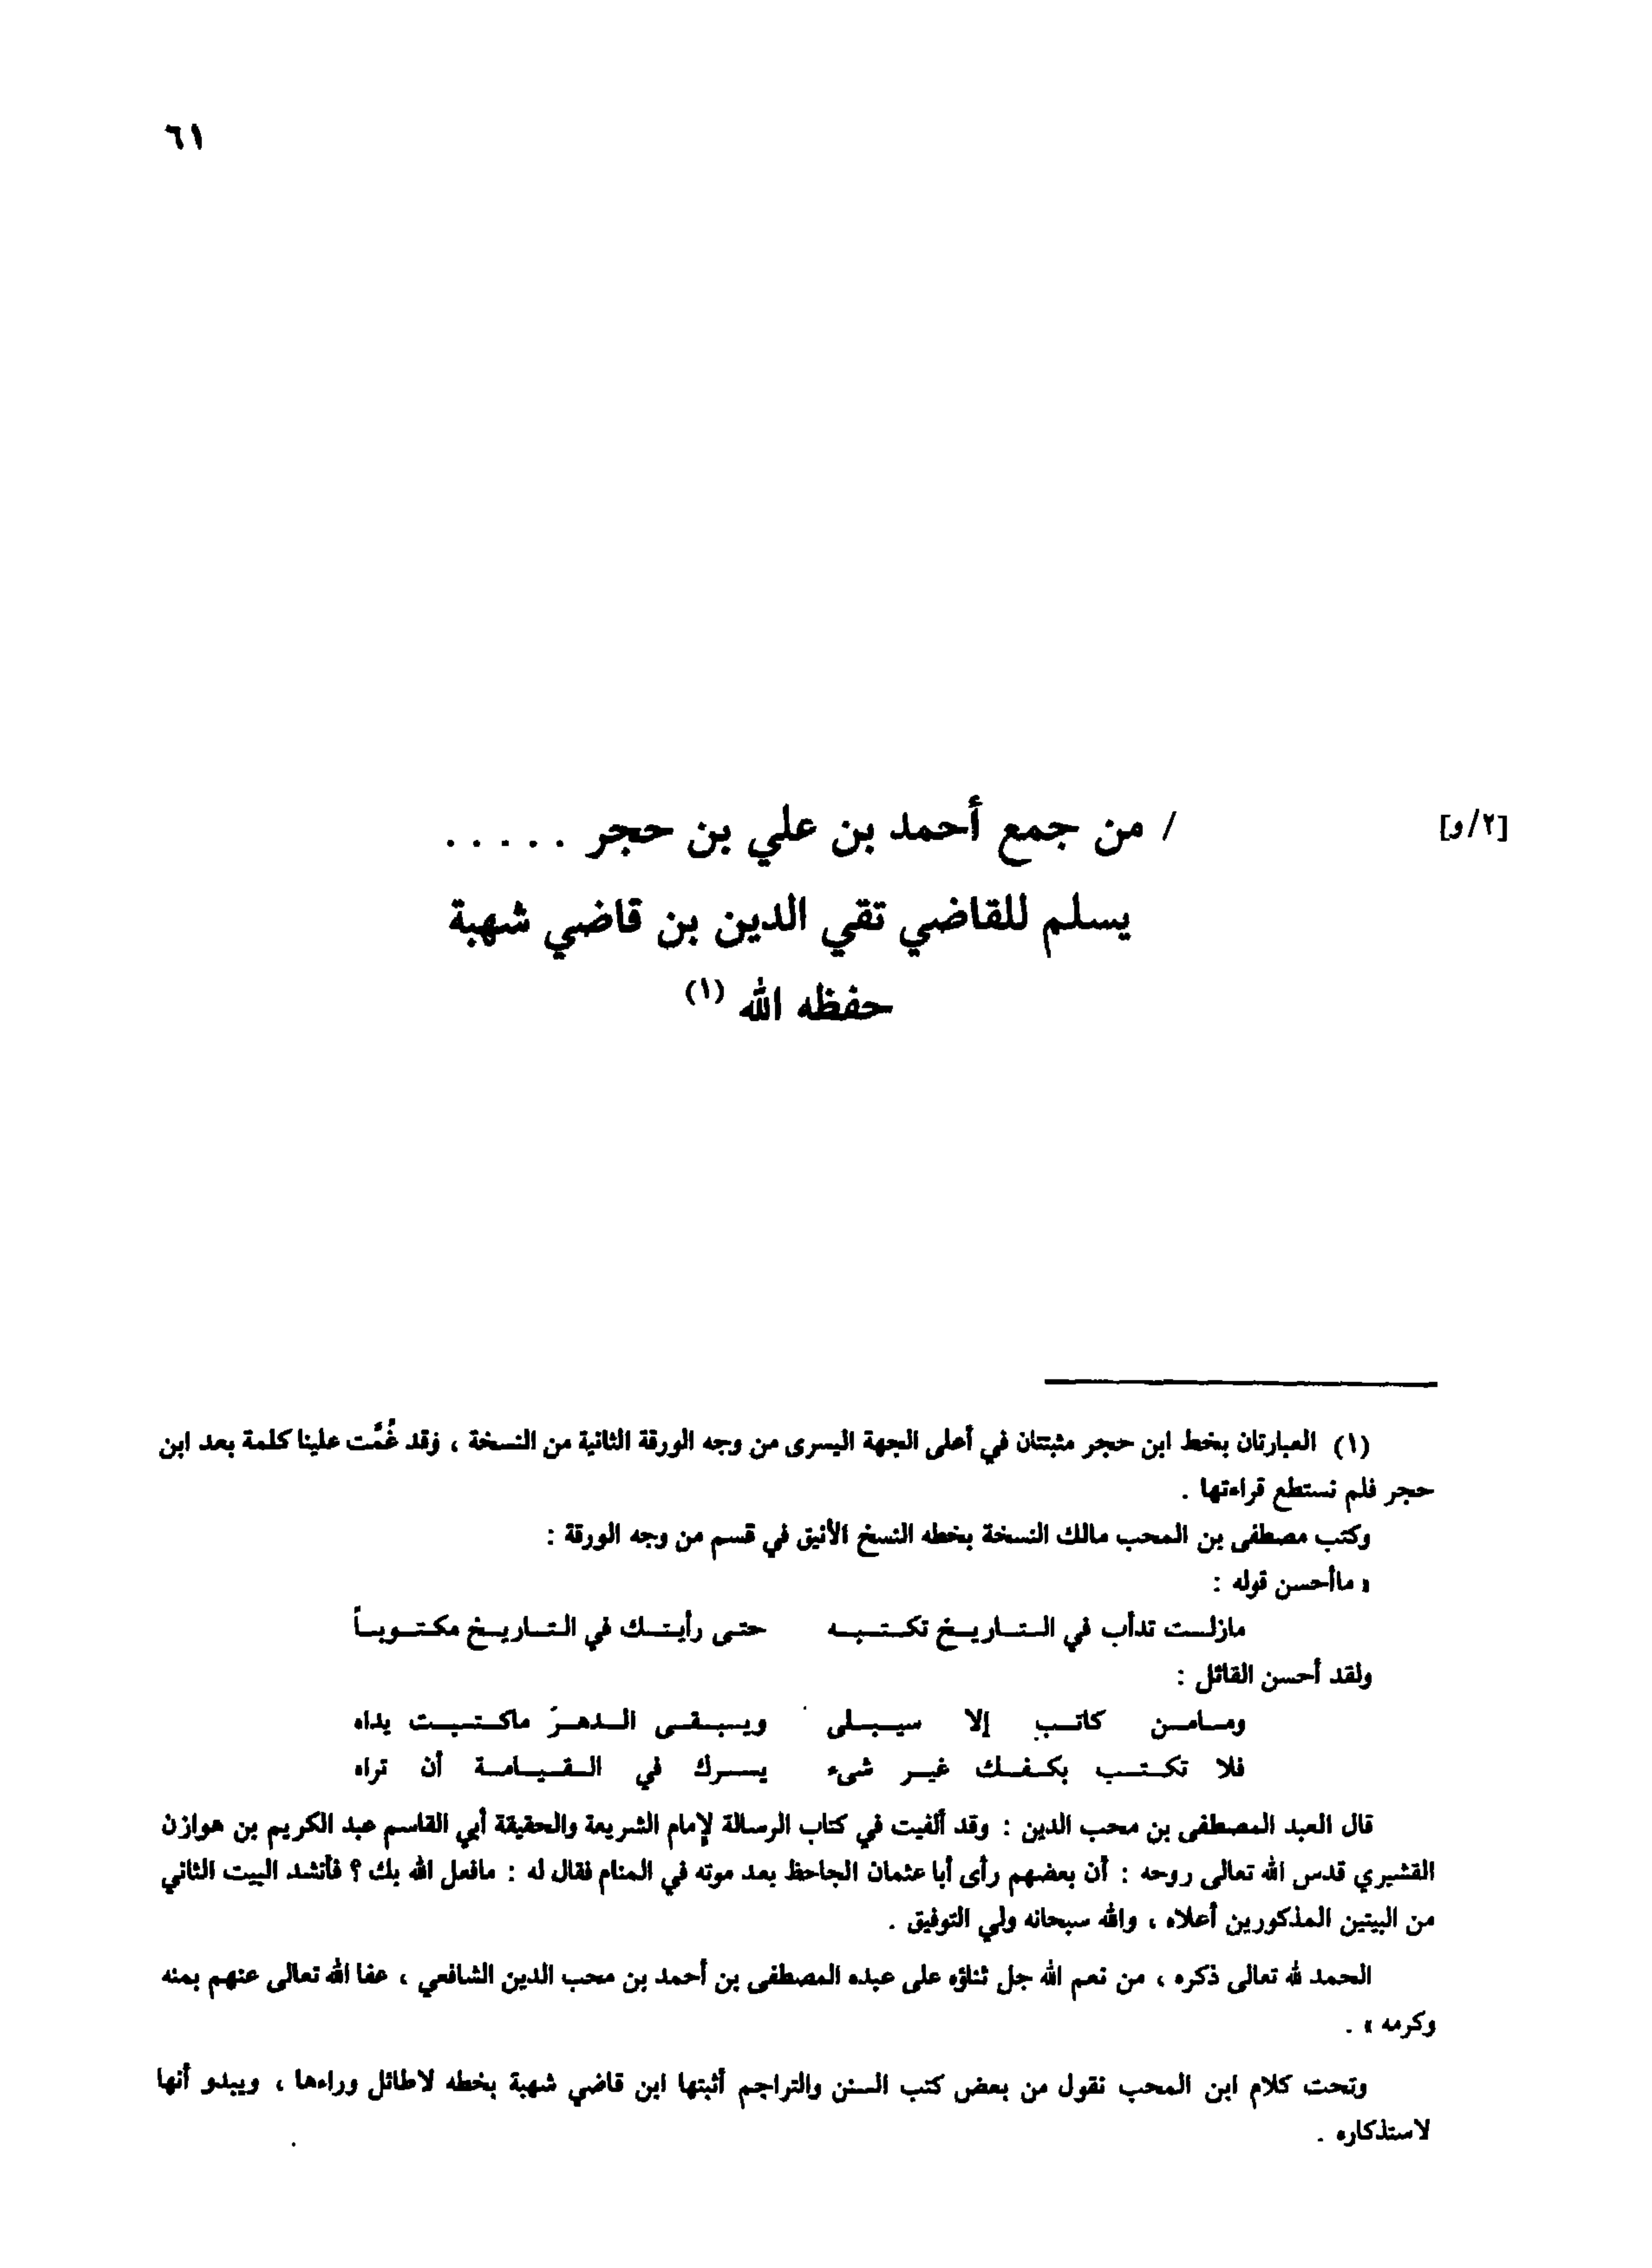 ٦١
[٢/و]
/ من جمع أحمد بن علي بن حجر . . . . .
يسلم للقاضي تقي الدين بن قاضي شهبة
حفظه الله (١)
(١) العبارتان بخط ابن حجر مثبتتان في أعلى الجهة اليسرى من وجه الورقة الثانية من النسخة ، وقد غُمَّت علينا كلمة بعد ابن
حجر فلم نستطع قراءتها .
وكتب مصطفى بن المحب مالك النسخة بخطه النسخ الأنيق في قسم من وجه الورقة :
« ماأحسن قوله :
مازلت تدأب في التاريخ تكتبه حتى رأيتك في التاريخ مكتوباً
ولقد أحسن القائل :
ومامن كاتب إلا سيبلى ويبقى الدهرَ ماكتبت يداه
فلا تكتب بكفك غير شيء يسرك في القيامة أن تراه
قال العبد المصطفى بن محب الدين : وقد ألفيت في كتاب الرسالة لإمام الشريعة والحقيقة أبي القاسم عبد الكريم بن هوازن
القشيري قدس الله تعالى روحه : أن بعضهم رأى أبا عثمان الجاحظ بعد موته في المنام فقال له : مافعل الله بك ؟ فأنشد البيت الثاني
من البيتين المذكورين أعلاه ، والله سبحانه ولي التوفيق .
الحمد لله تعالى ذكره ، من نعم الله جل ثناؤه على عبده المصطفى بن أحمد بن محب الدين الشافعي ، عفا الله تعالى عنهم بمنه
وكرمه » .
وتحت كلام ابن المحب نقول من بعض كتب السنن والتراجم أثبتها ابن قاضي شهبة بخطه لاطائل وراءها ، ويبدو أنها
لاستذكاره .